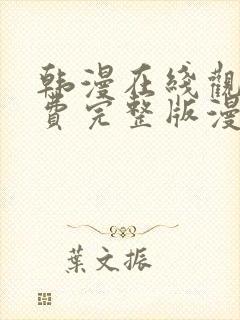 韩漫在线觀
費完整版漫
葉文振